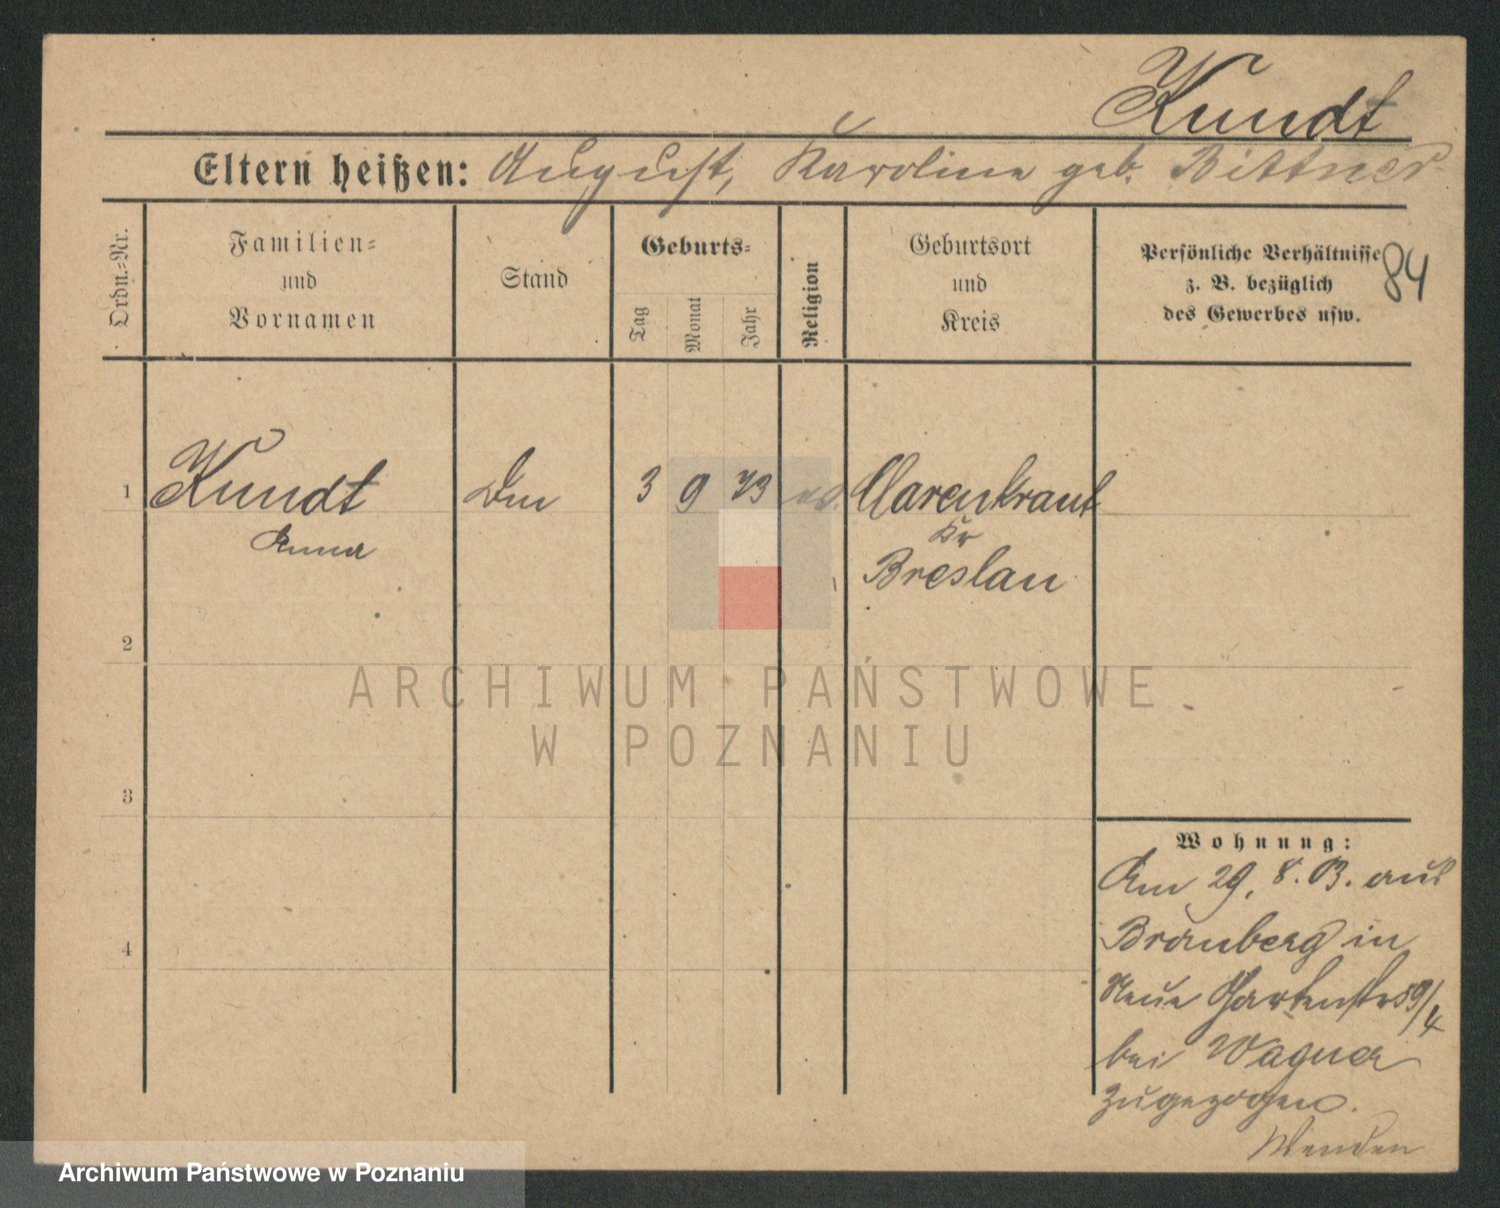 Kundt
Eltern heißen: August, Karoline geb. Bittner
Ordn.-Nr.
Familien-
und
Vornamen
Stand
Geburts-
Tag
Monat
Jahr
Religion
Geburtsort
und
Kreis
Persönliche Verhältnisse
z. B. bezüglich
des Gewerbes usw.
84
1 Kundt 3 9 73 Clarenkranst
Anna
Kr
Breslau
2
ARCHIWUM PAŃSTWOWE
W POZNANIU
3
4
Wohnung:
Am 29. 8. 03. aus
Bromberg in
Neue Gartenstr 59/4
bei Wagner
zugezogen.
Archiwum Państwowe w Poznaniu